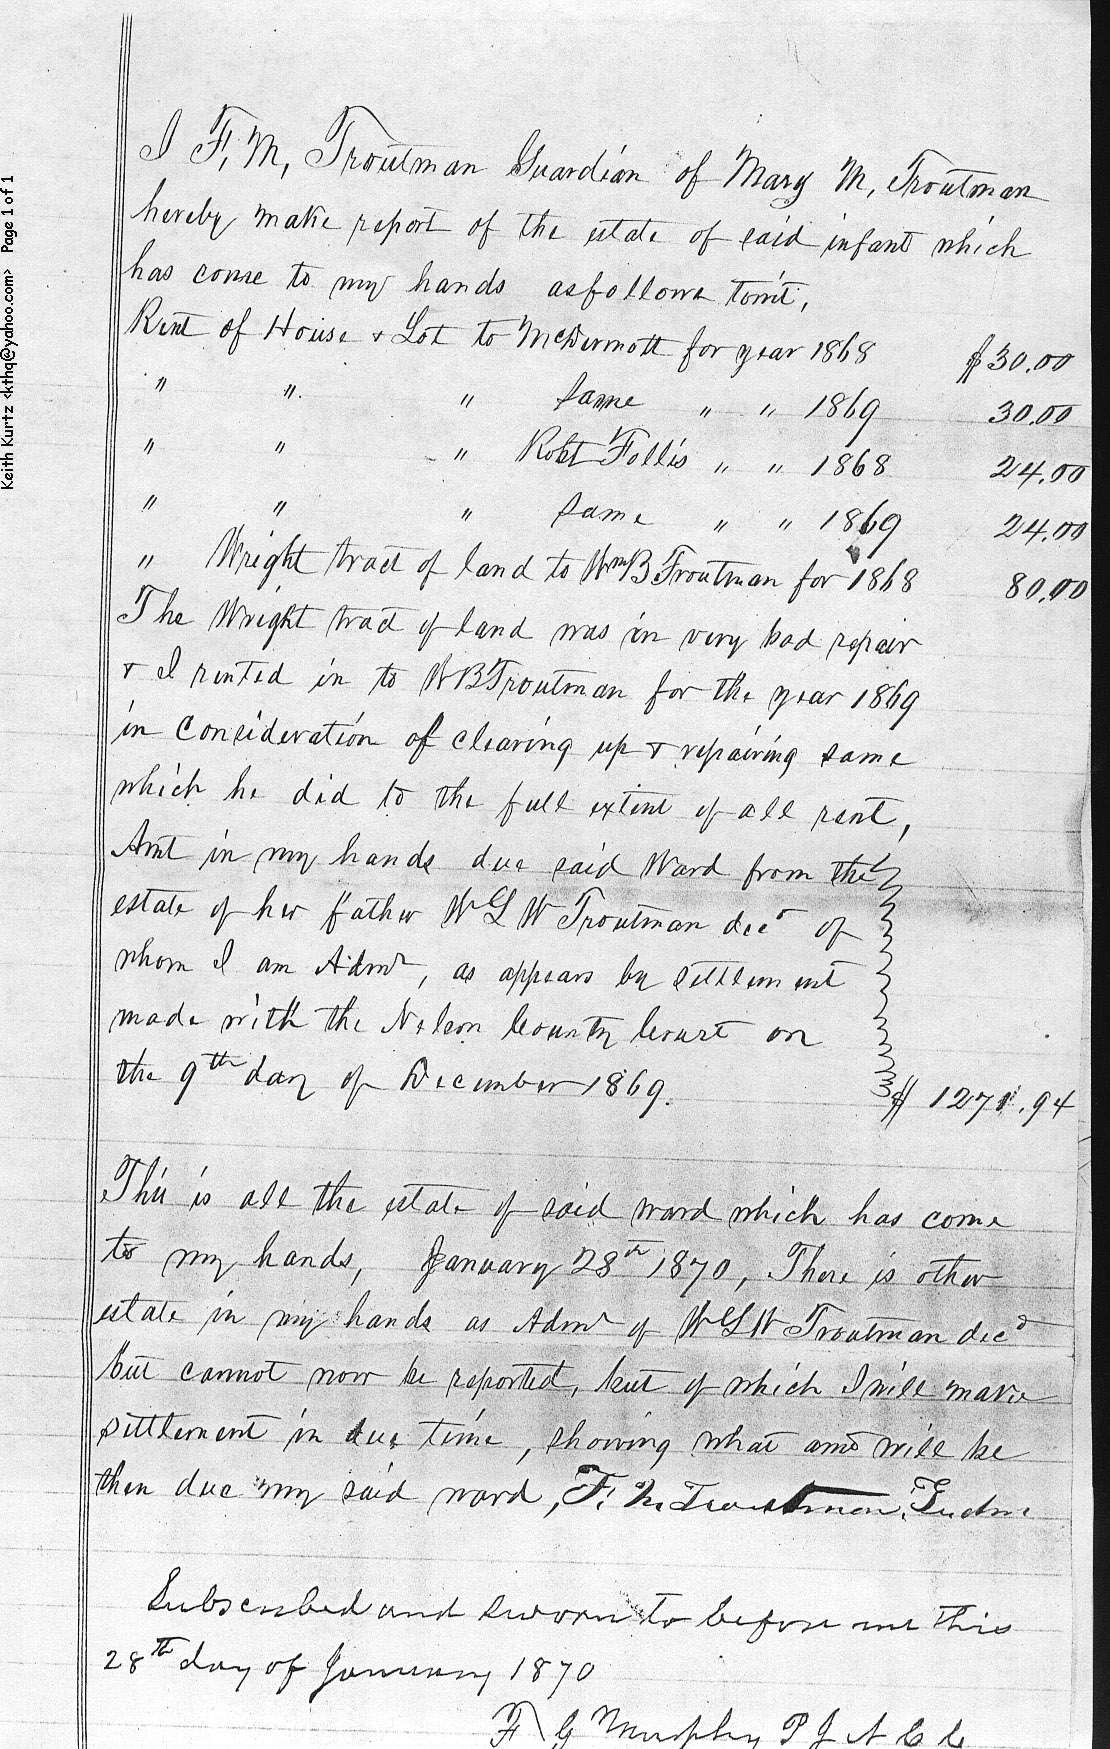 I F. M. Troutman Guardian of Mary M. Troutman
hereby make report of the estate of said infant which
has come to my hands as follows towit,
Rent of House & Lot to McDermott for year 1868 $30.00
" " " same " " 1869 30.00
" " " Robt Follis " " 1868 24.00
" " " same " " 1869 24.00
" Wright tract of land to Wm B Troutman for 1868 80.00
The Wright tract of land was in very bad repair
& I rented in to W B Troutman for the year 1869
in consideration of clearing up & repairing same
which he did to the full extent of all rent,
Amt in my hands due said Ward from the
estate of her father W G W Troutman decd of
whom I am Admr, as appears by settlement
made with the Nelson County Court on
the 9th day of December 1869. $ 1271.94
This is all the estate of said ward which has come
to my hands, January 28th 1870, There is other
estate in my hands as Admr of W G W Troutman decd
but cannot now be reported, but of which I will make
settlement in due time, showing what amt will be
then due my said ward, F. M. Troutman, Gudn
Subscribed and sworn to before me this
28th day of January 1870
F G Murphy P J N C C
Keith Kurtz <kthq@yahoo.com> Page 1 of 1